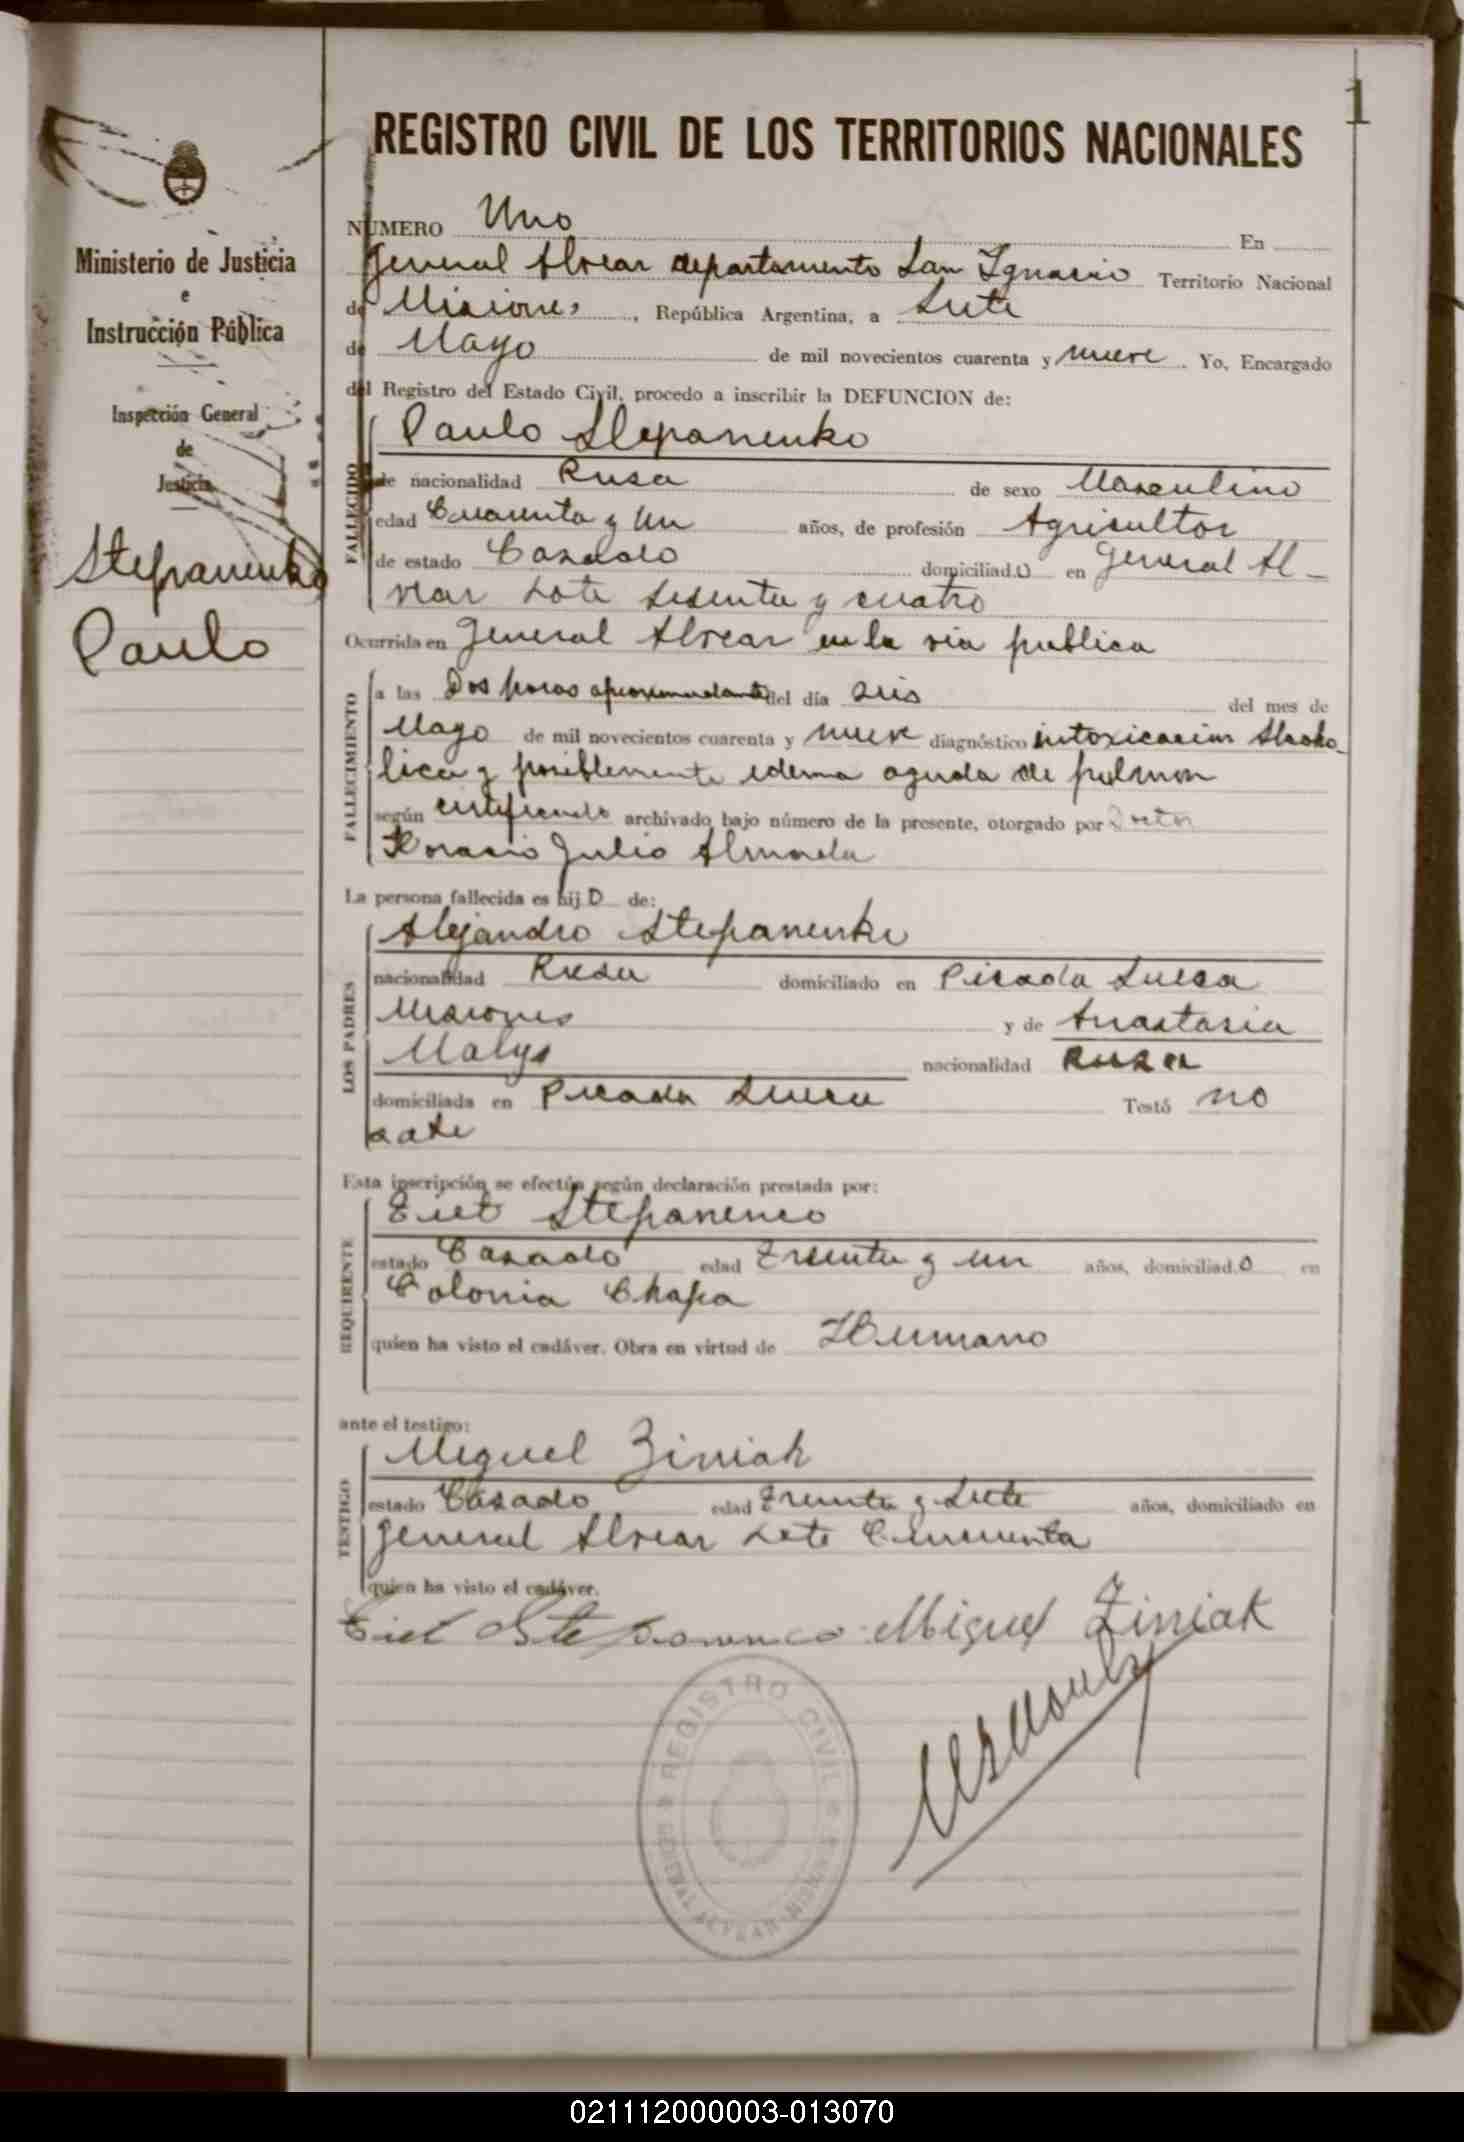 1
REGISTRO CIVIL DE LOS TERRITORIOS NACIONALES
Ministerio de Justicia
e
Instrucción Pública
Inspección General
de
Justicia
Stepanenko
Paulo
NUMERO Uno En
General Alvear departamento San Ignacio Territorio Nacional
de Misiones, República Argentina, a Siete
de Mayo de mil novecientos cuarenta y nueve. Yo, Encargado
del Registro del Estado Civil, procedo a inscribir la DEFUNCION de:
FALLECIDO
Paulo Stepanenko
de nacionalidad Rusa de sexo Masculino
edad Cuarenta y Un años, de profesión Agricultor
de estado Casado domiciliado en General Al-
vear Lote Sesenta y cuatro
Ocurrida en General Alvear en la via publica
FALLECIMIENTO
a las Dos horas aproximadamente del día seis del mes de
Mayo de mil novecientos cuarenta y nueve diagnóstico intoxicacion Alcoho-
lica y posiblemente edema aguda de pulmon
según certificado archivado bajo número de la presente, otorgado por Doctor
Horacio Julio Almada
La persona fallecida es hijo de:
LOS PADRES
Alejandro Stepanenko
nacionalidad Rusa domiciliado en Picada Sueca
Misiones y de Anastasia
Malys nacionalidad Rusa
domiciliada en Picada Sueca Testó no
sabe
Esta inscripción se efectúa según declaración prestada por:
REQUIRENTE
Stepanenco
estado Casado edad Treinta y un años, domiciliado en
Colonia Chapa
quien ha visto el cadáver. Obra en virtud de Hermano
ante el testigo:
TESTIGO
Miguel Ziniak
estado Casado edad Treinta y Siete años, domiciliado en
General Alvear Lote Cincuenta
quien ha visto el cadáver.
Stepanenco Miguel Ziniak
REGISTRO CIVIL
GENERAL ALVEAR MISIONES
021112000003-013070